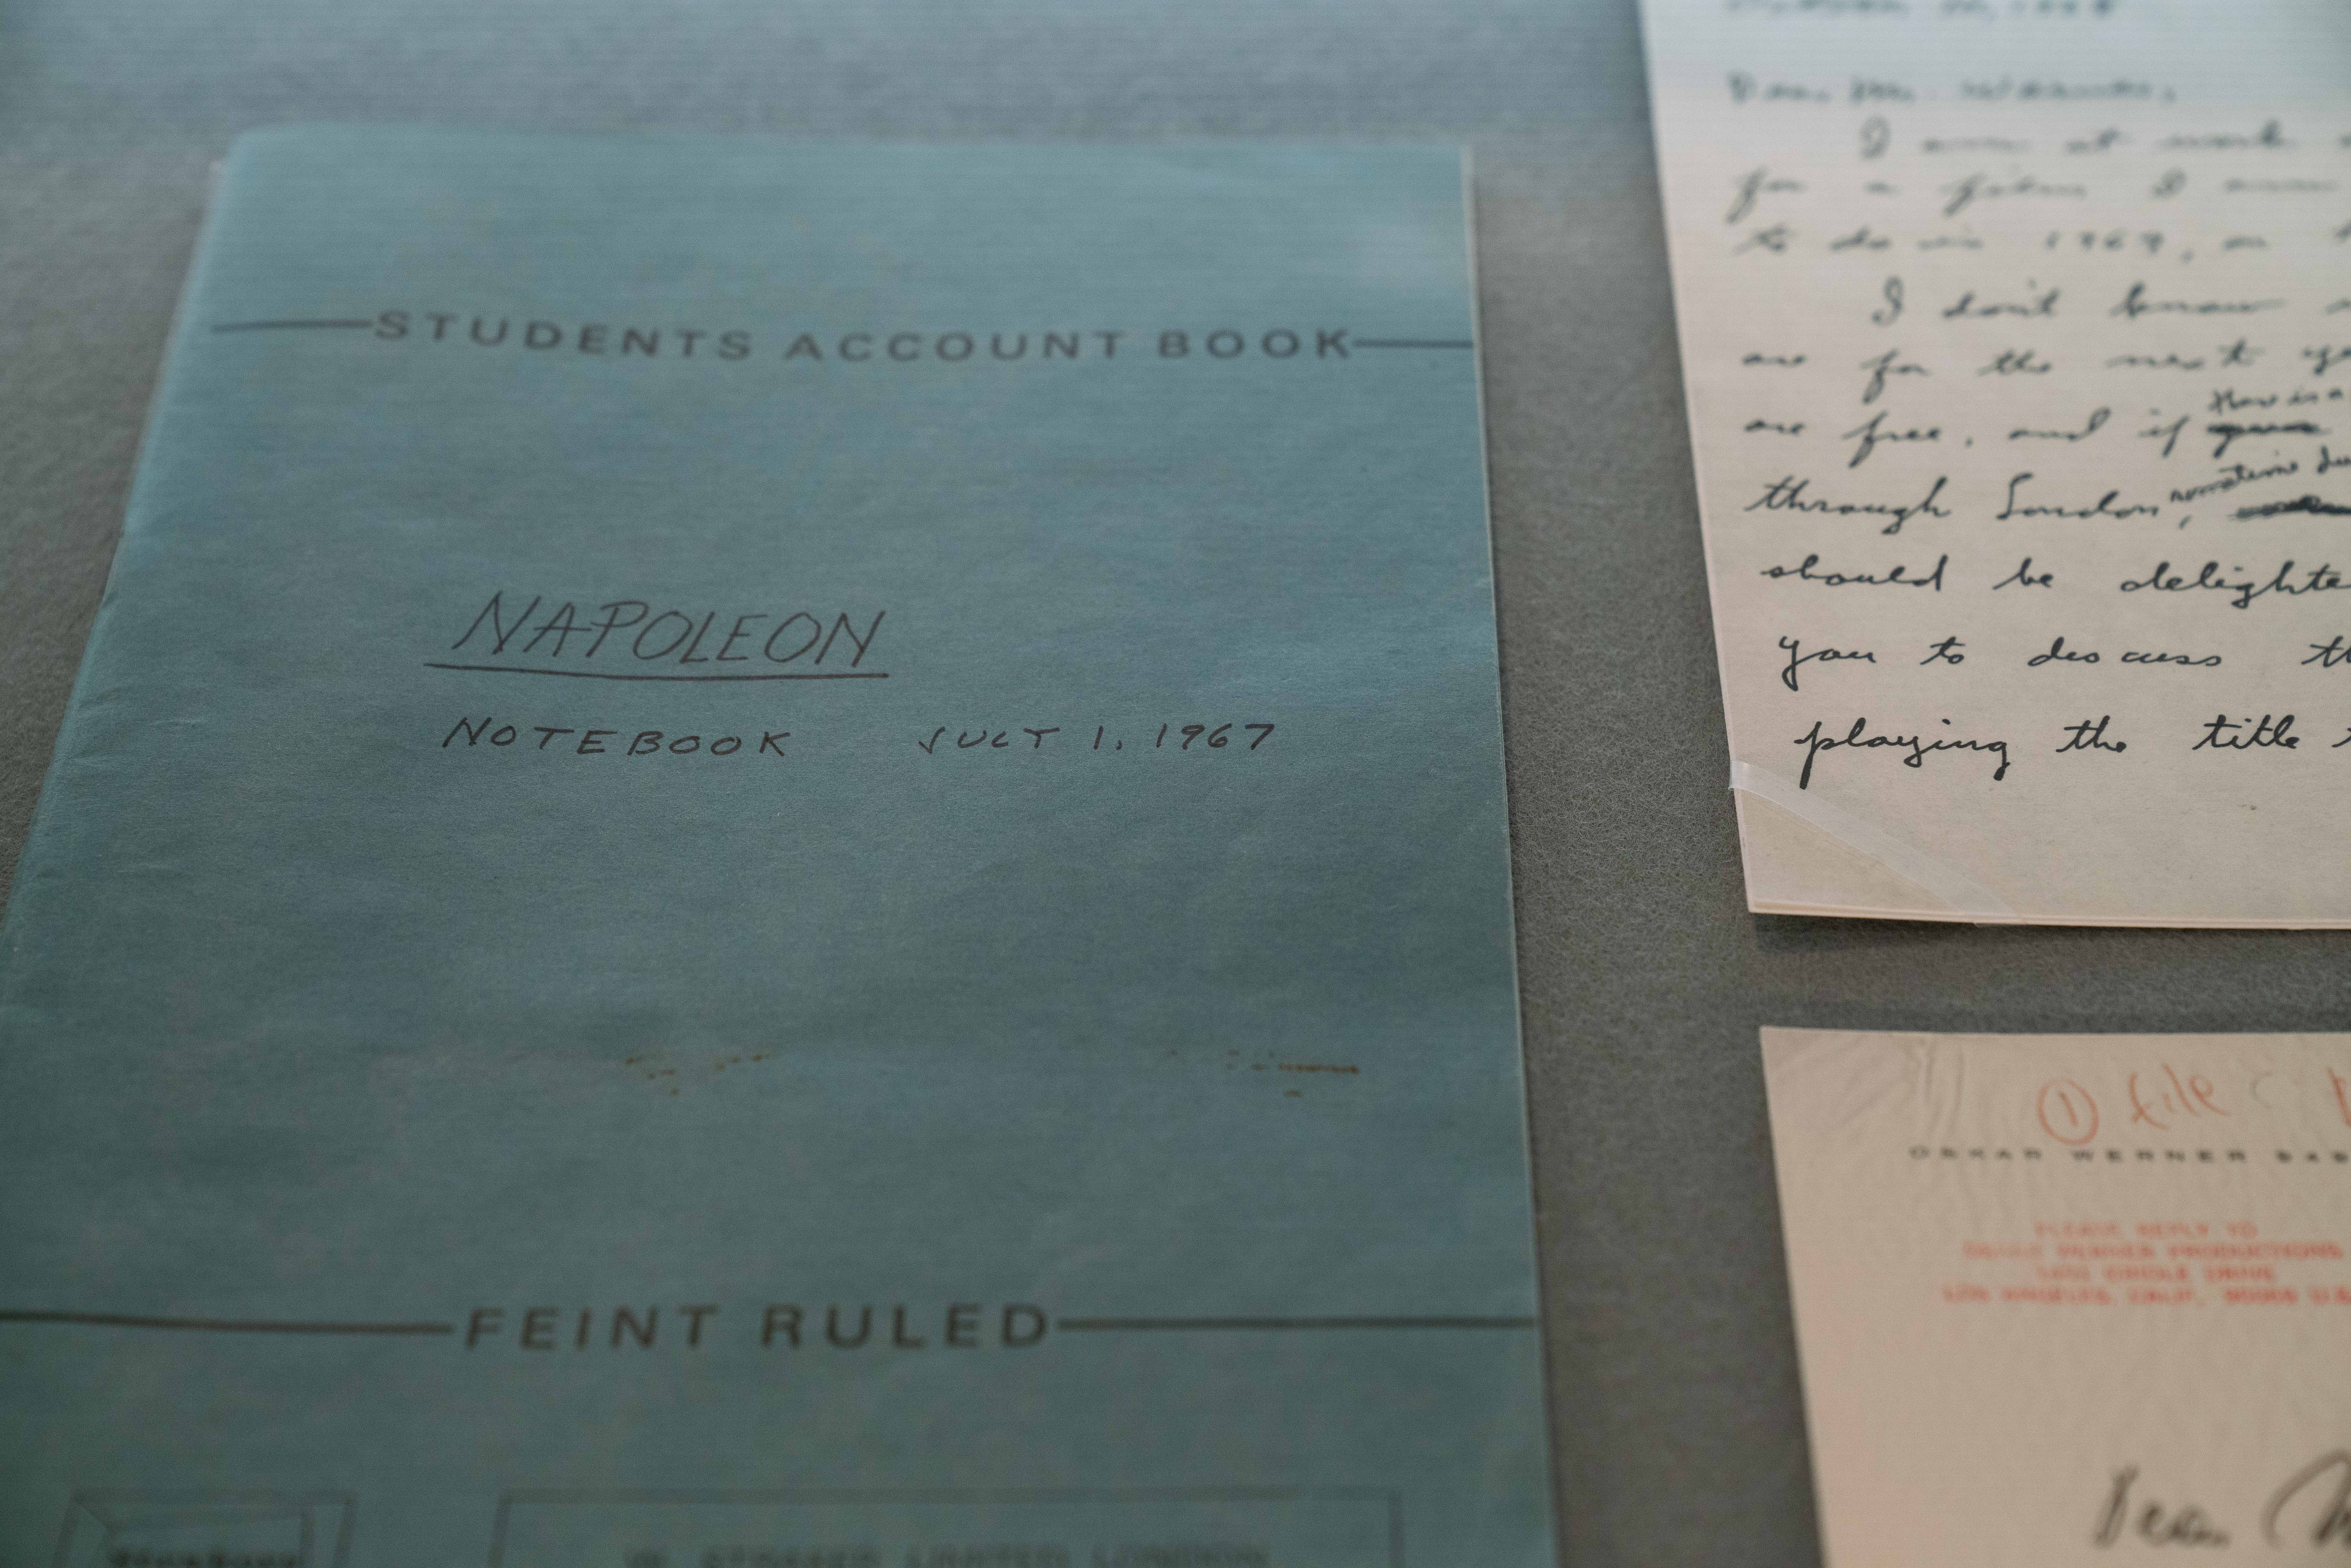 STUDENTS ACCOUNT BOOK
NAPOLEON
NOTEBOOK JULY 1, 1967
FEINT RULED
LIMITED LONDON
Dear Mr. Werner,
I am at work
for a film I
to do in 1969, on
I don't know
are for the next
there is a
are free, and if
sometime
through London,
should be delighte
you to discuss th
playing the title
① file :
OSKAR WERNER
PLEASE REPLY TO
OSKAR WERNER PRODUCTIONS
DRIVE
LOS ANGELES, CALIF. 90069 U.S.
Dear M